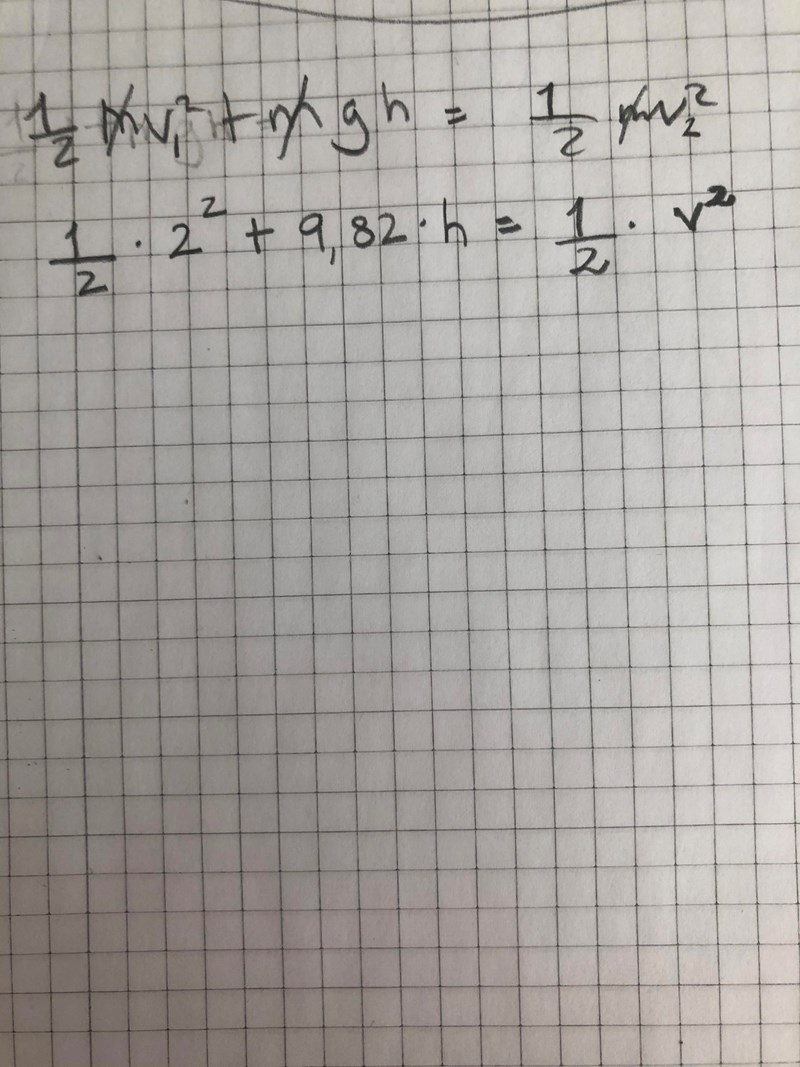 1/2 mv₁² + mgh = 1/2 mv₂²
1/2 · 2² + 9,82 · h = 1/2 · v²